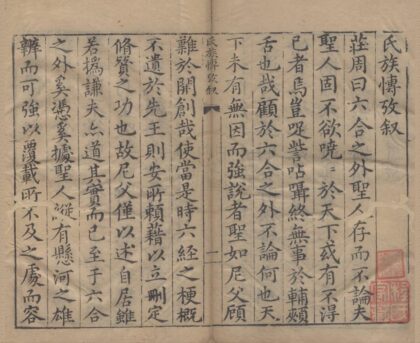 氏族博攷叙
莊周曰六合之外聖人存而不論夫
聖人固不欲嘵〻於天下或有不得
已者焉豈呫讋呫囁終無事於輔頰
舌也哉顧於六合之外不論何也天
下未有無因而強說者聖如尼父顧
氏族博攷叙
一
難於開創哉使當是時六經之梗概
不遺於先王則安所賴藉以立刪定
脩贊之功也故尼父僅以述自居雖
若撝謙夫亦道其實而已至于六合
之外奚憑奚據聖人縱有縣河之雄
辨而可強以覆載所不及之處而容